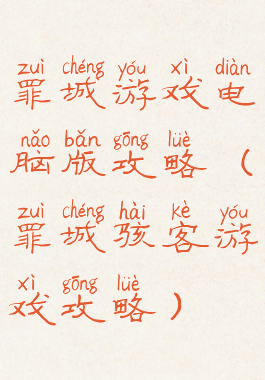 zuì chéng yóu xì diàn
罪城游戏电
nǎo bǎn gōng lüè
脑版攻略（
zuì chéng hài kè yóu
罪城骇客游
xì gōng lüè
戏攻略）